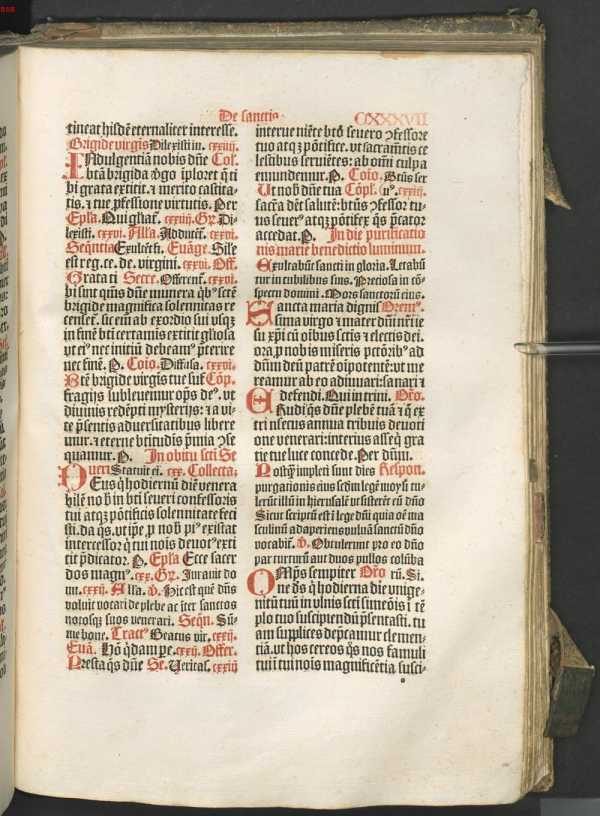 De sanctis
CXXXVII
tineat hisdē eternaliter interesse.
Brigide virgīs Dilexisti iu. cxxiiij.
INdulgentiā nobis dn̄e Col̄.
btā brigida v̓go īploret q̄ ti
bi grata extitit. ⁊ merito castita
tis. ⁊ tue ꝓfessione virtutis. Per
Ep̄la. Qui gl̄iat̉. cxxiiij. Gr̄. Di-
lexisti. cxxvi. Al̄la. Adducēt̉. cxxvi.
Seq̄ntia Exultēt fi. Euāge. Sile
est reg. ce. de. virgini. cxxvi. Off.
Grata ti Secre. Offerent̉. cxxvi.
bi sint q̄s dn̄e munera q̄bꝰ sctē
brigide magnifica solennitas re
censet̉. sic em̄ ab exordio sui vsqꝫ
in finē bti certamis extitit gl̄iosa
vt eiꝰ nec initiū debeamꝰ p̄terire
nec finē. P. Cōio. Diffusa. cxxvi.
Btē brigide virgīs tue suf Cōp.
fragijs subleuemur op̄s deꝰ. vt
diuinis redēpti mysterijs: ⁊ a vi-
te p̄sentis aduersitatibus libere
mur. ⁊ eterne btitudīs p̄mia ꝯse
quamur. P. In obitu scti Se
ueri Statuit ei. cxx. Collecta:
DEus q̄ hodiernū diē venera
bilē nob̄ in bti seueri confessoris
tui atqꝫ pōtificis solennitate feci
sti. da q̄s. vt ip̄e ꝓ nob̄ piꝰ existat
intercessor q̄ tui nōis deuotꝰ exti
tit p̄dicator. P. Ep̄la Ecce sacer
dos magnꝰ. cxx. Gr̄. Iurauit do
mi. cxxij. Alla. v̓. Hic est quē dn̄s
voluit vocari de plebe ac iter sanctos
norosq̓ suos venerari. Seq̄n. Sū-
me bone. Tractꝰ Beatus vir. cxxij.
Euā. Hō q̄dam pe. cxxij. Offer.
Presta q̄s dn̄e Se. Ueritas. cxxiij
interue niēte btō seuero ꝯfessore
tuo atqꝫ pōtifice. vt sacramētis ce
lestibus seruiētes: ab oīmi culpa
emundemur. P. Cōio. Btūs ser
Ut nob̄ dn̄e tua Cōpl̄. uꝰ. cxxiij.
sacrā det salutē: btūs ꝯfessor tu-
us seuerꝰ atqꝫ pōtifex q̄s p̄cator
accedat. P. In die purificatio
nis marie benedictio luminum.
Exultabūt sancti in gloria. Letabū
tur in cubilibus suis. Preciosa in cō-
spectu domini. Mors sanctorū eius.
SAncta maria digniſ Oremꝰ.
sima virgo ⁊ mater dn̄i nr̄i ie
su xp̄i cū oībus sctīs ⁊ electis dei.
ora, ꝓ nobis miseris pctōribꝰ ad
dn̄m deū patrē oīpotentē: vt me
reamur ab eo adiuuari: sanari ⁊
defendi. Qui in trini. Oro.
EXudi q̄s dn̄e plebē tuā ⁊ q̄ ex
trinsecus annua tribuis deuoti
one venerari: interius asseq̄ gra
tie tue luce concede. Per dn̄m.
Postq̄ impleti sunt dies Respon.
purgationis eius scd̄m legē moysi: tu-
lerūt illū in hierusalē vt sisterēt eū dn̄o
Sicut scriptū est ī lege dn̄i quia oē ma
sculinū adaperiens vuluā sanctū dn̄o
vocabit̉. v̓. Obtulerunt pro eo dn̄o
par turturū aut duos pullos colūba
OMp̄s sempiter Oro rū. Si.
ne ds̄ q̄ hodierna die vnige-
nitū tuū in vlnis scti simeōis ī tē
plo tuo suscipiendū p̄sentasti. tu
am supplices dep̄camur clemen-
tiā. vt hos cereos q̄s nos famuli
tui ī tui nōis magnificētia susci-